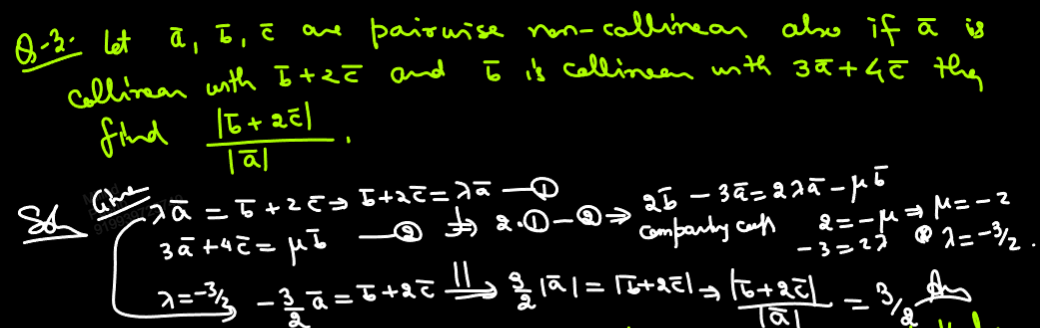 Q-3. Let a̅, b̅, c̅ are pairwise non-collinear also if a̅ is
collinear with b̅+2c̅ and b̅ is collinear with 3a̅+4c̅ then
find |b̅+2c̅| / |a̅| .
Sol Given λa̅ = b̅+2c̅ ⇒ b̅+2c̅ = λa̅ —① ⇒ 2.①-② ⇒ 2b̅-3a̅=2λa̅-μb̅
3a̅+4c̅ = μb̅ —② comparing coeff 2=-μ ⇒ μ=-2
-3=2λ λ=-3/2 .
λ=-3/2 -3/2 a̅ = b̅+2c̅ || ⇒ 3/2 |a̅| = |b̅+2c̅| ⇒ |b̅+2c̅| / |a̅| = 3/2 Ans